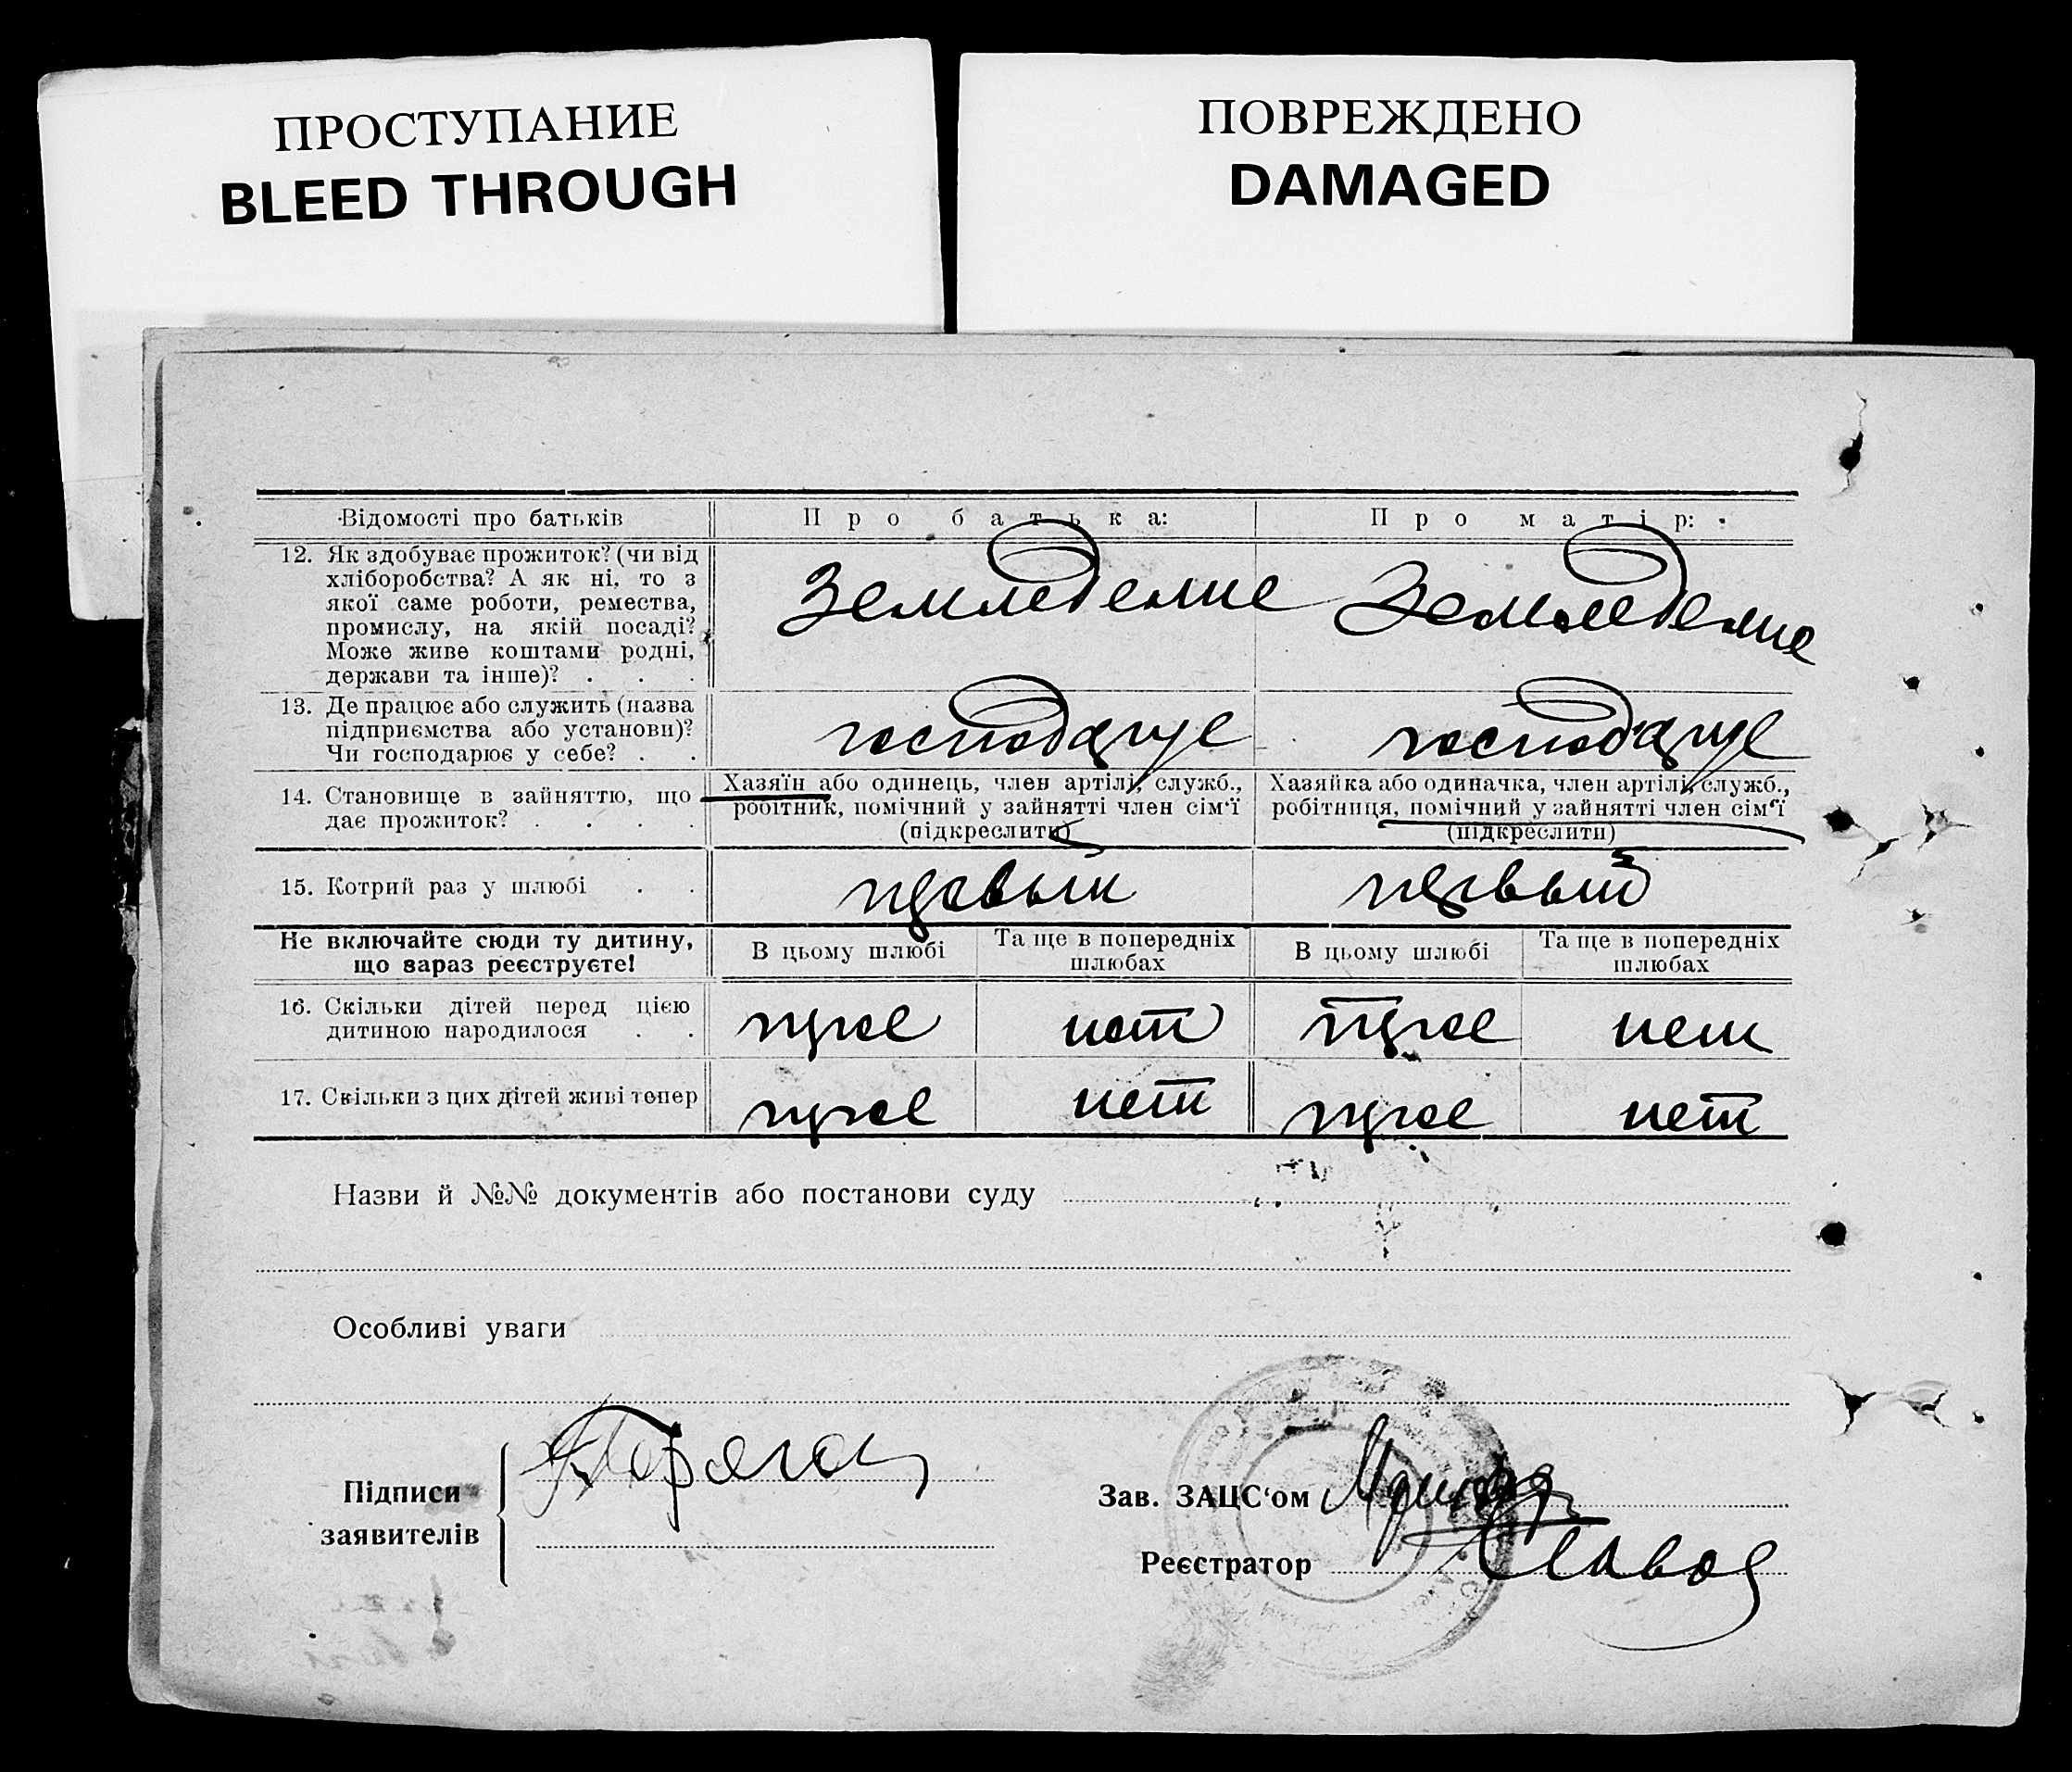 ПРОСТУПАНИЕ
BLEED THROUGH
ПОВРЕЖДЕНО
DAMAGED
Відомості про батьків
Про батька:
Про матір:
12. Як здобуває прожиток? (чи від
хліборобства? А як ні, то з
якої саме роботи, ремества,
промислу, на якій посаді?
Може живе коштами родні,
держави та інше)? . . .
Земледелие
Земледелие
13. Де працює або служить (назва
підприємства або установи)?
Чи господарює у себе? . .
господарує
господарує
14. Становище в зайняттю, що
дає прожиток? . . . .
Хазяїн або одинець, член артілі, служб.,
робітник, помічний у зайнятті член сім'ї
(підкреслити)
Хазяйка або одиначка, член артілі, служб.,
робітниця, помічний у зайнятті член сім'ї
(підкреслити)
15. Котрий раз у шлюбі . .
первый
первый
Не включайте сюди ту дитину,
що зараз реєструєте!
В цьому шлюбі
Та ще в попередніх
шлюбах
В цьому шлюбі
Та ще в попередніх
шлюбах
16. Скільки дітей перед цією
дитиною народилося . .
нет
нет
17. Скільки з цих дітей живі тепер
нет
нет
Назви й №№ документів або постанови суду
Особливі уваги
Підписи
заявителів
Зав. ЗАЦС'ом
Реєстратор